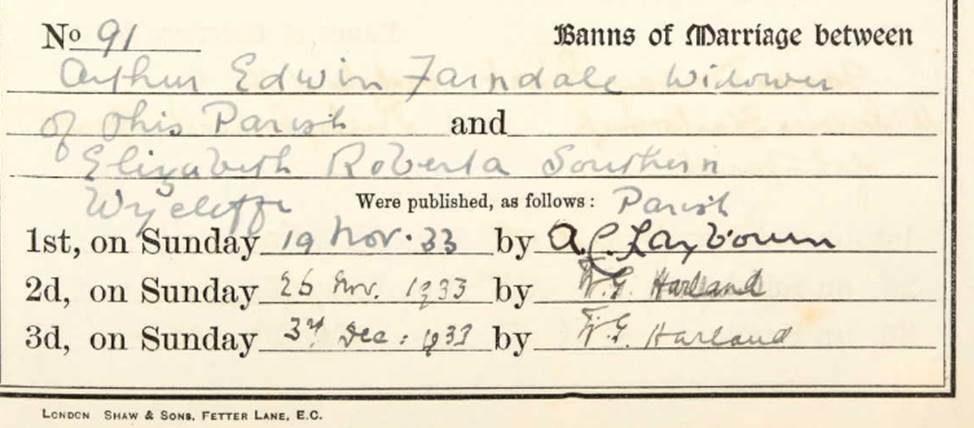 No 91 Banns of Marriage between
Arthur Edwin Farndale Widower
of this Parish and
Elizabeth Roberta Southern
Wycliffe Were published, as follows: Parish
1st, on Sunday 19 Nov. 33 by A.C. Laybourn
2d, on Sunday 26 Nov. 1933 by W.G. Harland
3d, on Sunday 3rd Dec: 1933 by W.G. Harland
LONDON SHAW & SONS, FETTER LANE, E.C.